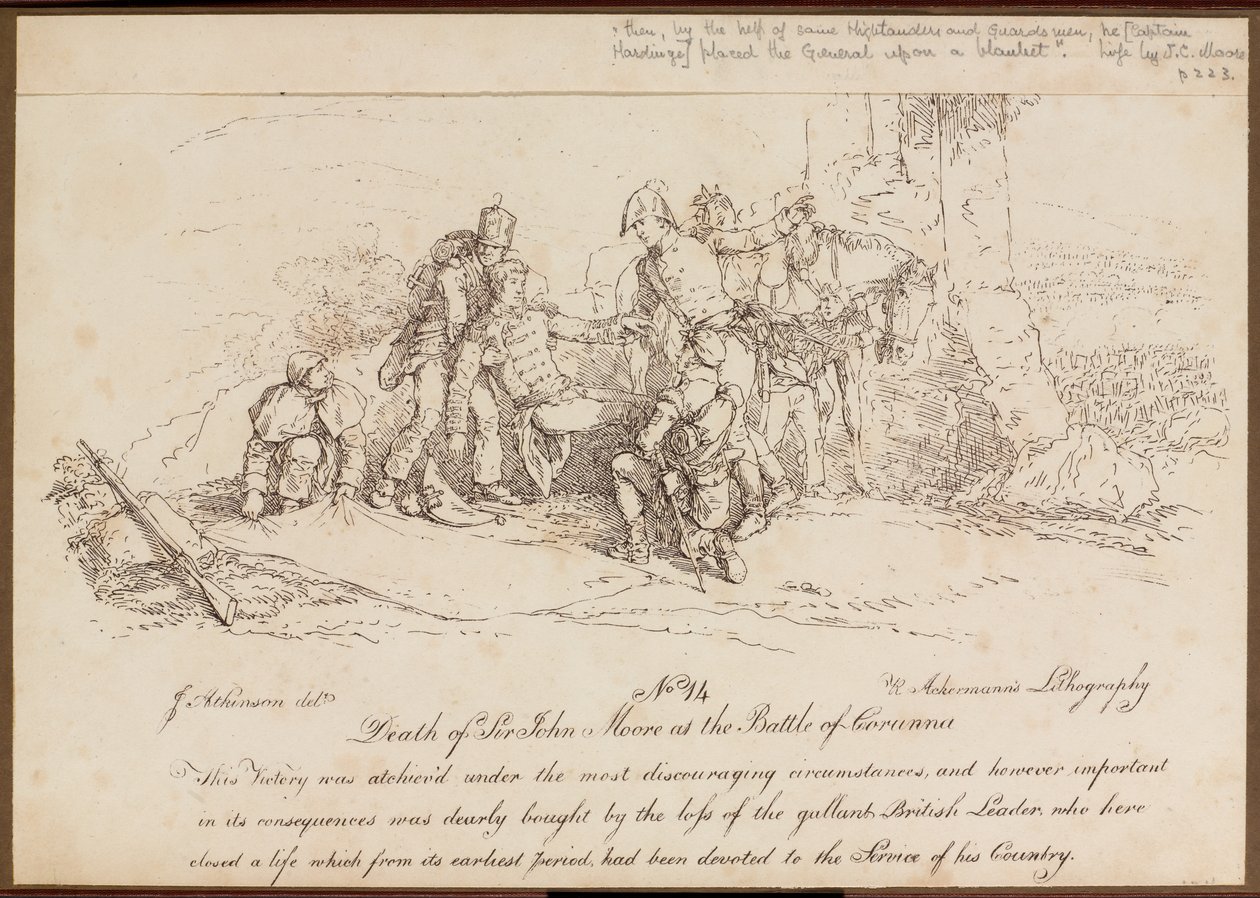 "then, by the help of some Highlanders and Guardsmen, he [Captain
Hardinge] placed the General upon a blanket". Life by J.C. Moore
p 223.
J Atkinson delt.
No 14
R Ackermann's Lithography
Death of Sir John Moore at the Battle of Corunna
This Victory was atchiev'd under the most discouraging circumstances, and however important
in its consequences was dearly bought by the loſs of the gallant British Leader, who here
closed a life which from its earliest Period, had been devoted to the Service of his Country.